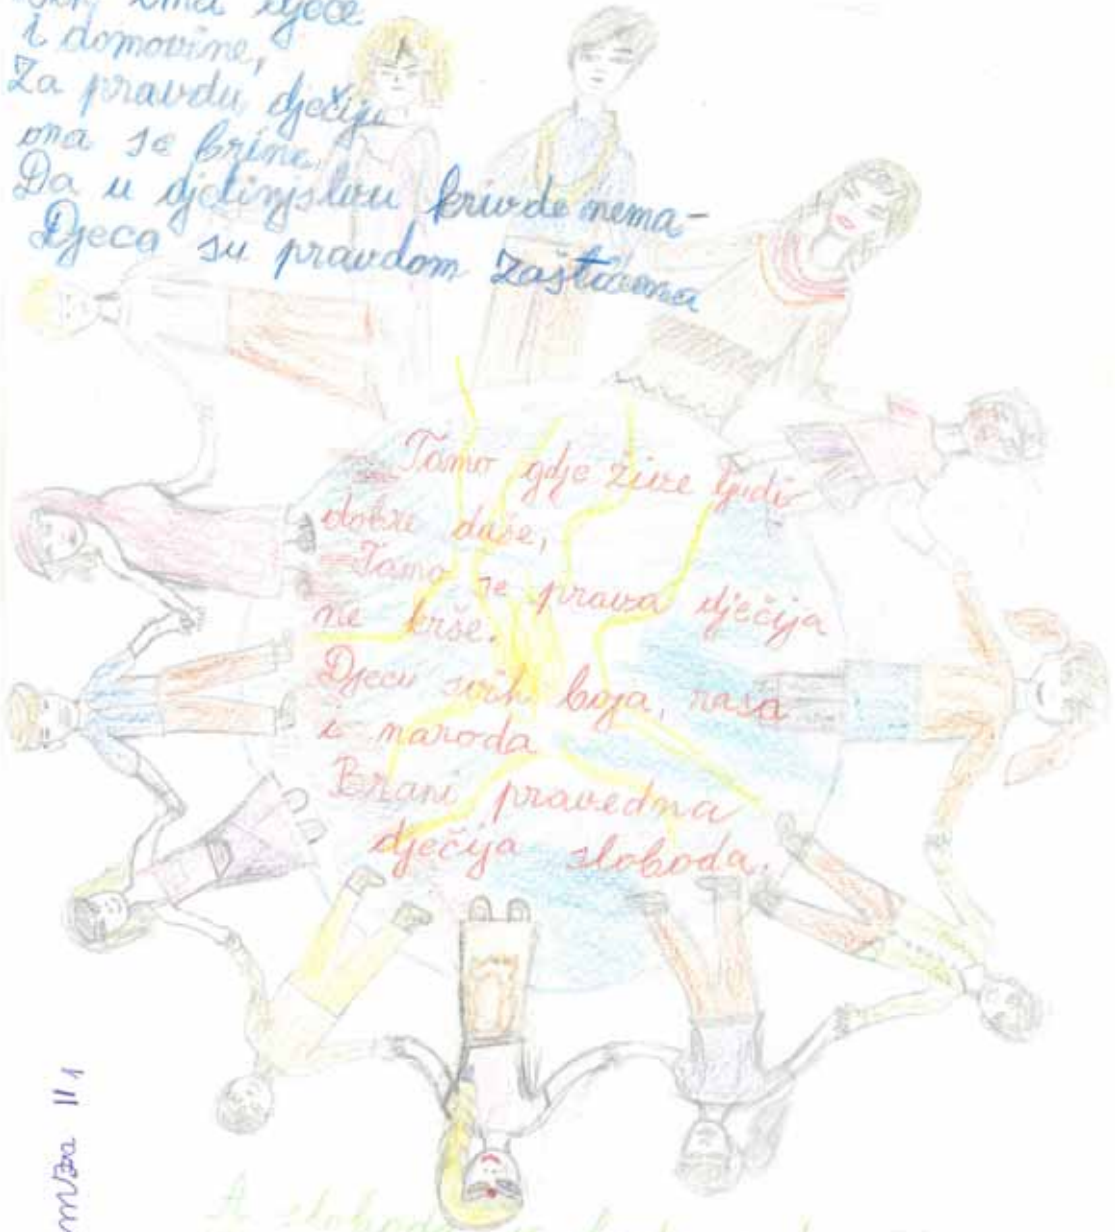 ima djece
i domovine,
Za pravdu dječiju
ona se brine.
Da u djetinjstvu krivde nema-
Djeca su pravdom zaštićena
Tamo gdje žive ljudi
dobre duše,
Tamo se prava dječija
ne krše.
Djecu svih boja, rasa
i naroda
Brani pravedna
dječija sloboda.
A sloboda